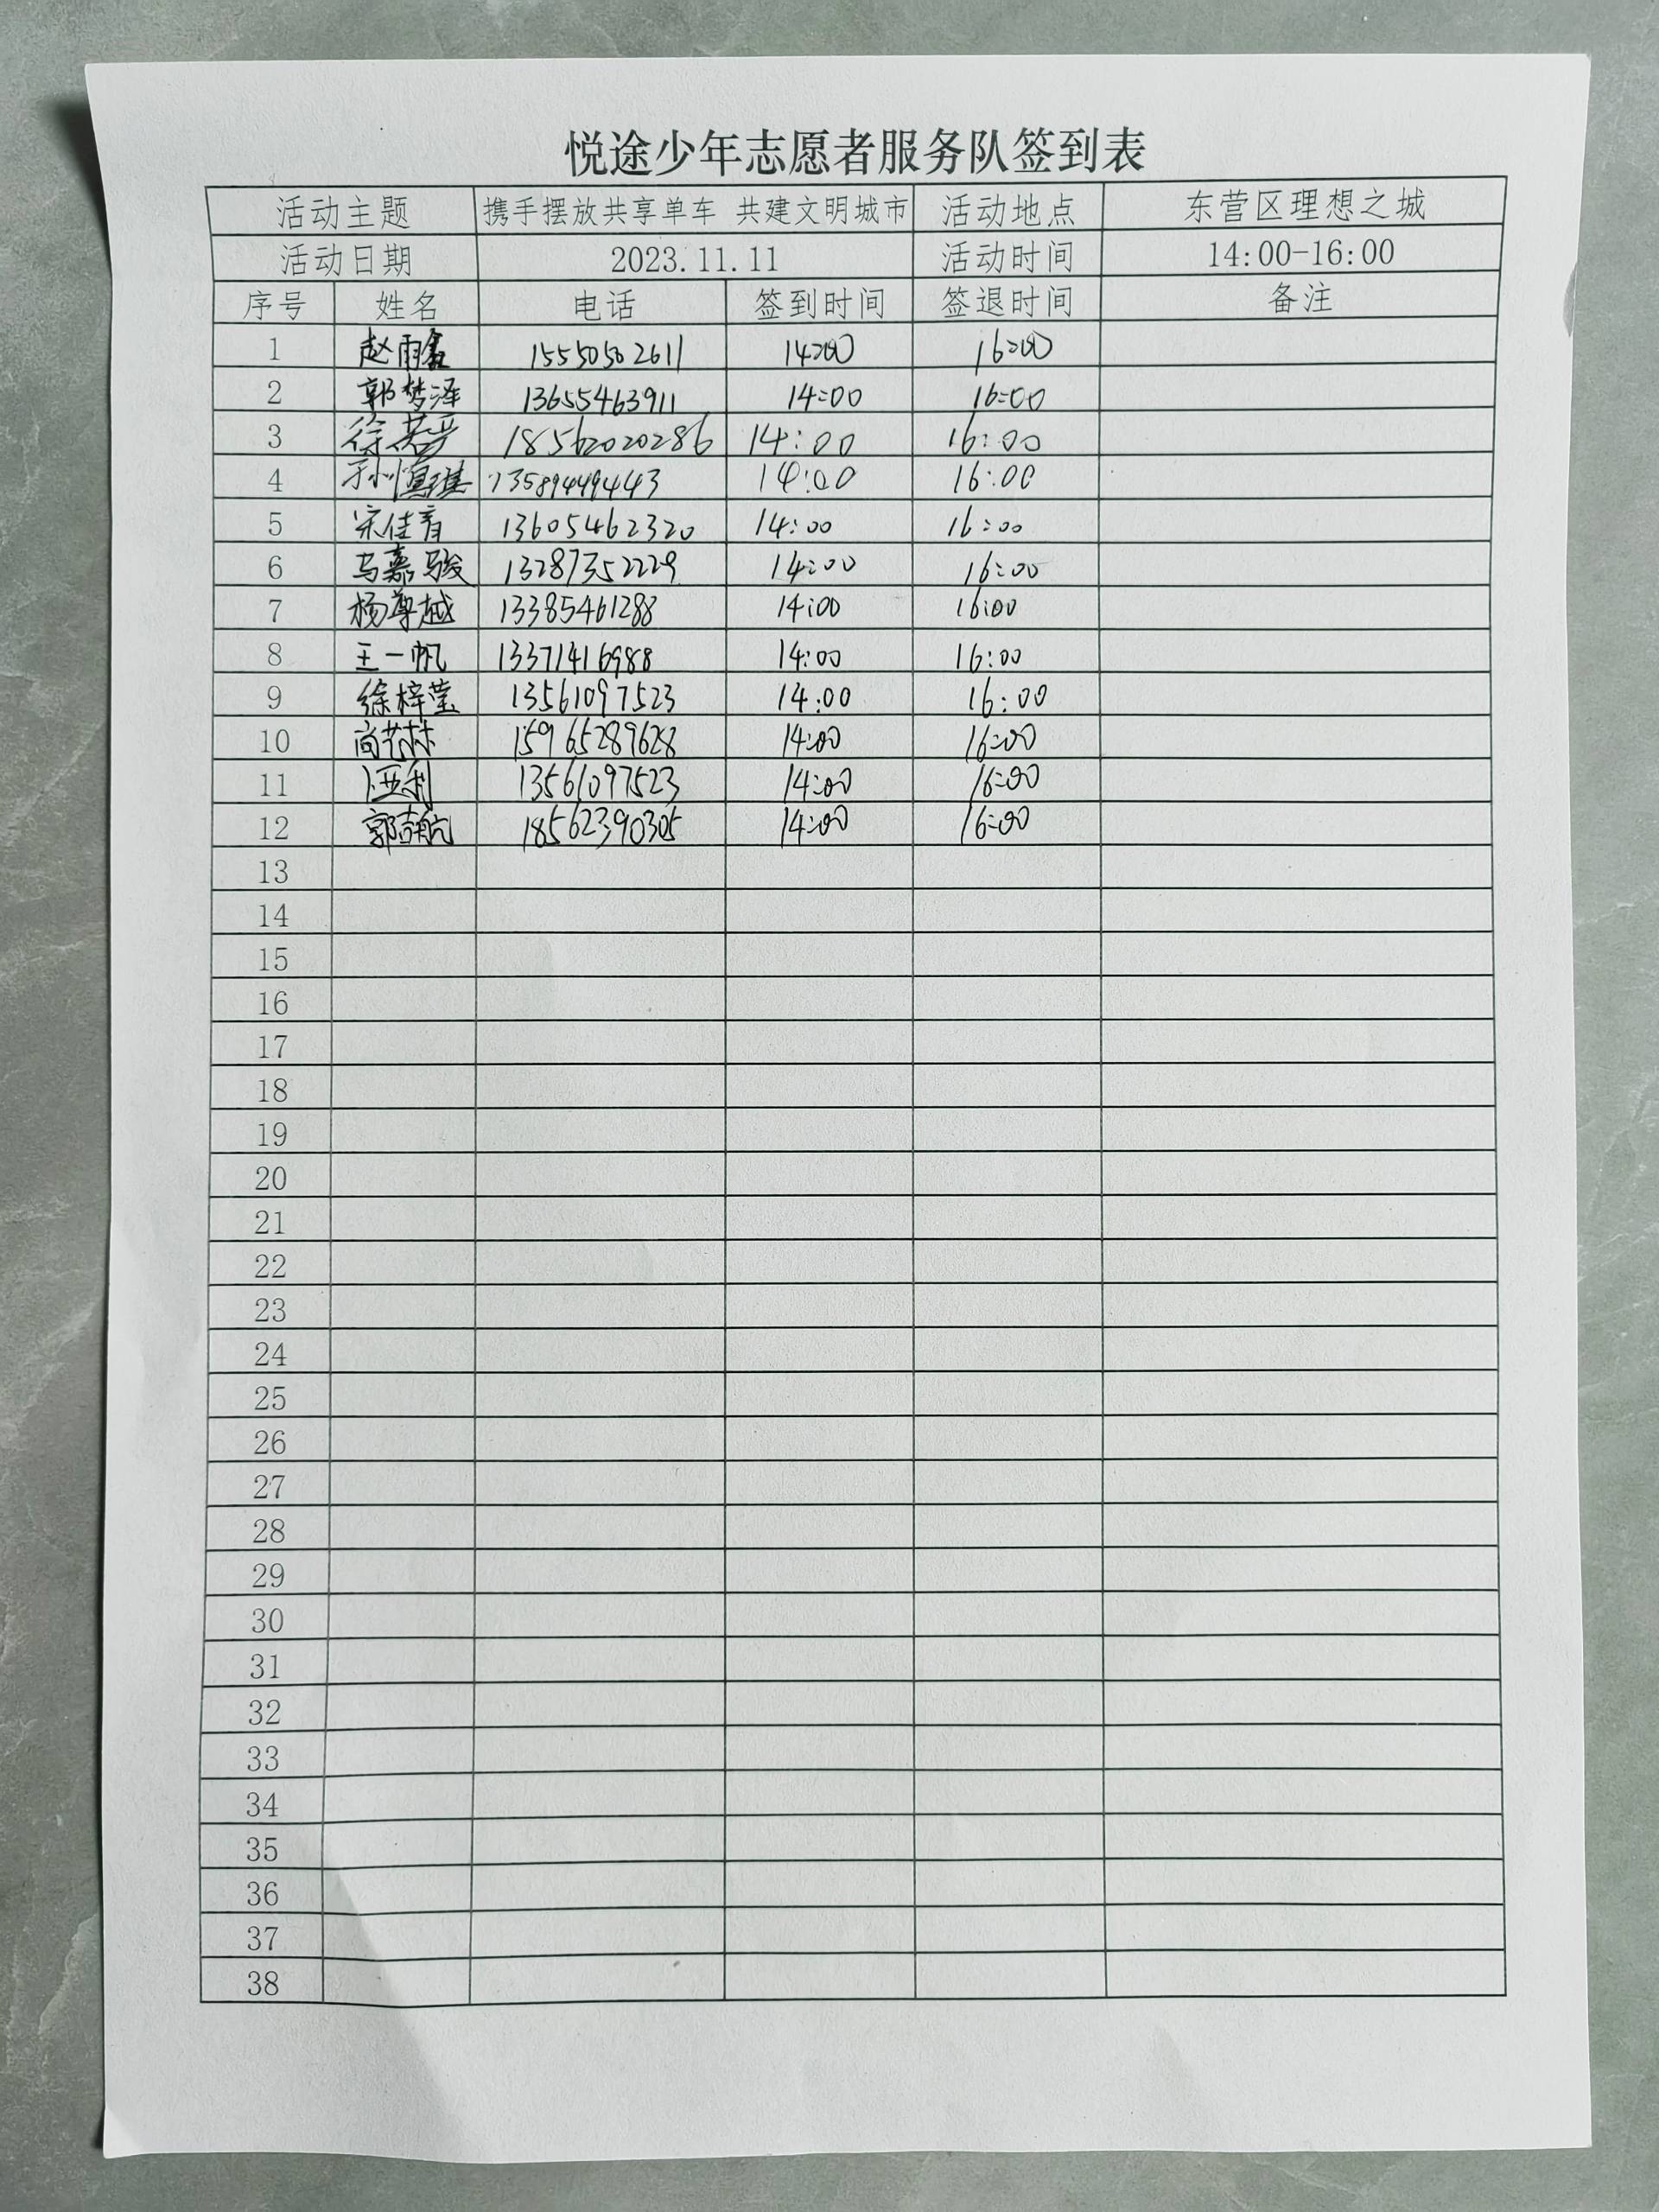 悦途少年志愿者服务队签到表
活动主题 携手摆放共享单车 共建文明城市 活动地点 东营区理想之城
活动日期 2023.11.11 活动时间 14:00-16:00
序号 姓名 电话 签到时间 签退时间 备注
1 赵雨鑫 15550502611 14:00 16:00
2 郭梦泽 13655463911 14:00 16:00
3 徐 18562020286 14:00 16:00
4 13589449443 14:00 16:00
5 宋佳音 13605462320 14:00 16:00
6 马嘉骏 13287352229 14:00 16:00
7 杨尊越 13385461288 14:00 16:00
8 王一帆 13371416988 14:00 16:00
9 徐梓莹 13561097523 14:00 16:00
10 尚艺林 15965289628 14:00 16:00
11 13561097523 14:00 16:00
12 18562390305 14:00 16:00
13
14
15
16
17
18
19
20
21
22
23
24
25
26
27
28
29
30
31
32
33
34
35
36
37
38